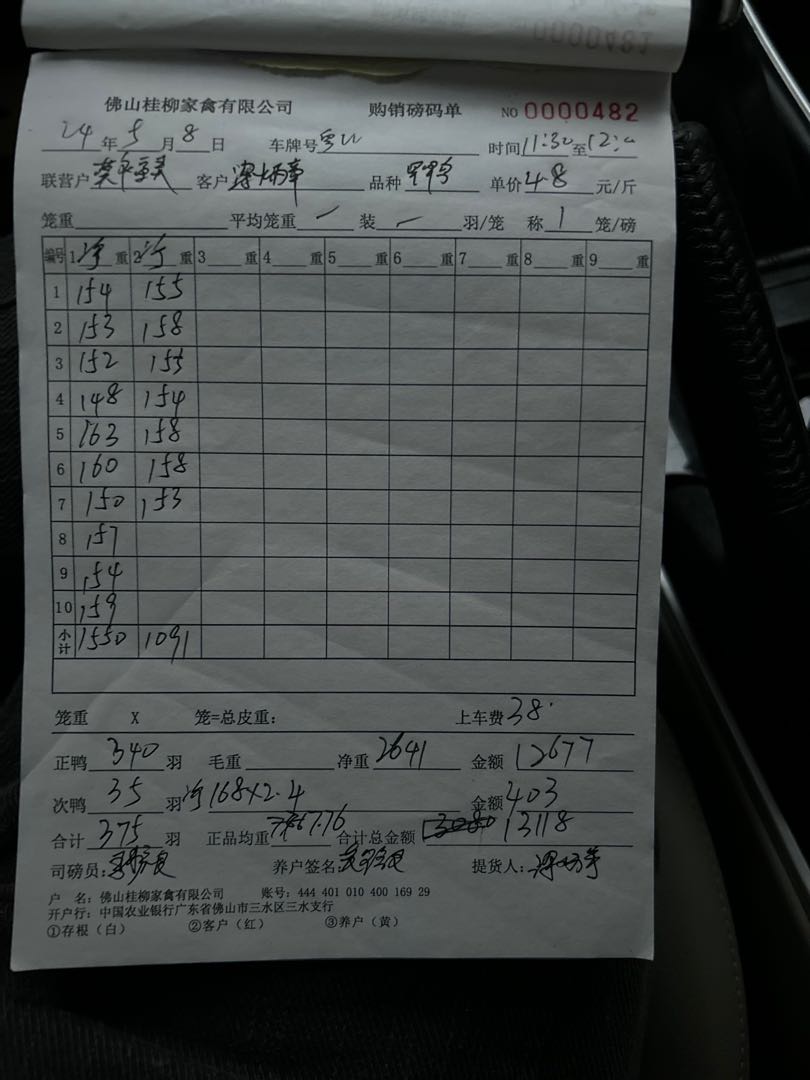 0000481
佛山桂柳家禽有限公司 购销磅码单 NO 0000482
24年5月8日 车牌号 时间11:30至12:0
联营户 客户 品种 单价4.8元/斤
笼重 平均笼重 / 装 / 羽/笼 称1笼/磅
编号 1净重 2净重 3 重 4 重 5 重 6 重 7 重 8 重 9 重
1 154 155
2 153 158
3 152 155
4 148 154
5 163 158
6 160 158
7 150 153
8 157
9 154
10 159
小计 1550 1091
笼重 X 笼=总皮重: 上车费38.
正鸭340羽 毛重 净重2641 金额12677
次鸭35羽 净168×2.4 金额403
合计375羽 正品均重7.76 合计总金额13118
司磅员: 养户签名 提货人:
户 名:佛山桂柳家禽有限公司 账号:444 401 010 400 169 29
开户行:中国农业银行广东省佛山市三水区三水支行
①存根(白) ②客户(红) ③养户(黄)